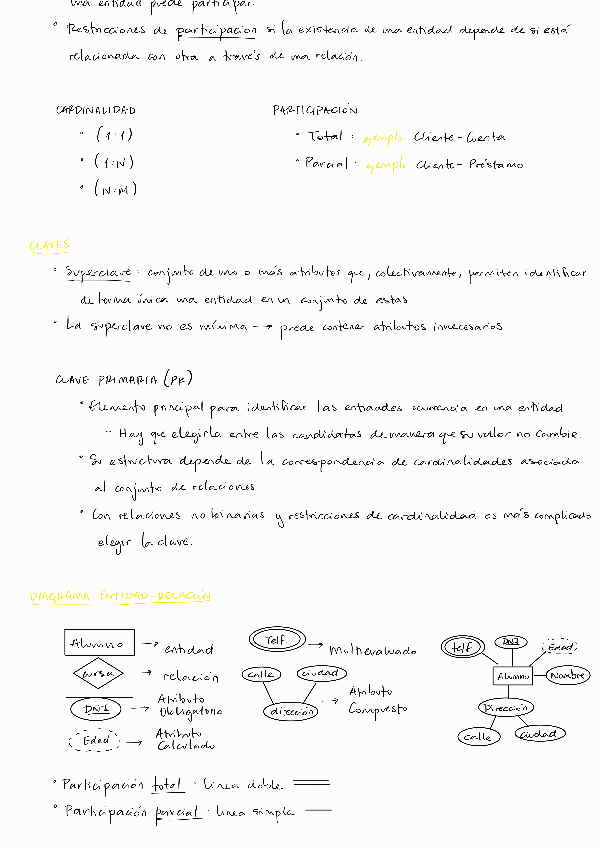 una entidad puede participar.
° Restricciones de participación si la existencia de una entidad depende de si está
relacionada con otra a través de una relación.
CARDINALIDAD
° (1:1)
° (1:N)
° (N:M)
PARTICIPACIÓN
° Total: ejemplo Cliente-Cuenta
° Parcial: ejemplo Cliente-Préstamo
CLAVES
° Superclave: conjunto de uno o más atributos que, colectivamente, permiten identificar
de forma única una entidad en un conjunto de estas
° La superclave no es mínima → puede contener atributos innecesarios
CLAVE PRIMARIA (PK)
° Elemento principal para identificar las entidades ocurrencia en una entidad
- Hay que elegirla entre las candidatas de manera que su valor no cambie.
° Su estructura depende de la correspondencia de cardinalidades asociada
al conjunto de relaciones
° Con relaciones no binarias y restricciones de cardinalidad es más complicado
elegir la clave.
DIAGRAMA ENTIDAD-RELACIÓN
Alumno → entidad
cursa → relación
DNI → Atributo
Obligatorio
Edad → Atributo
Calculado
Telf. → Multievaluado
calle
ciudad
dirección → Atributo
Compuesto
telf
DNI
Edad
Alumno
Nombre
Dirección
calle
ciudad
° Participación total · línea doble
° Participación parcial · línea simple